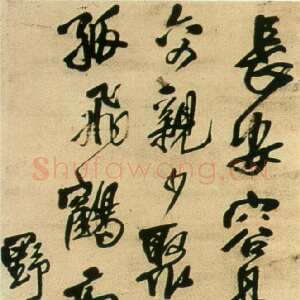 長安容
六親少聚
孤飛鶴高
野
Shufawang.cn